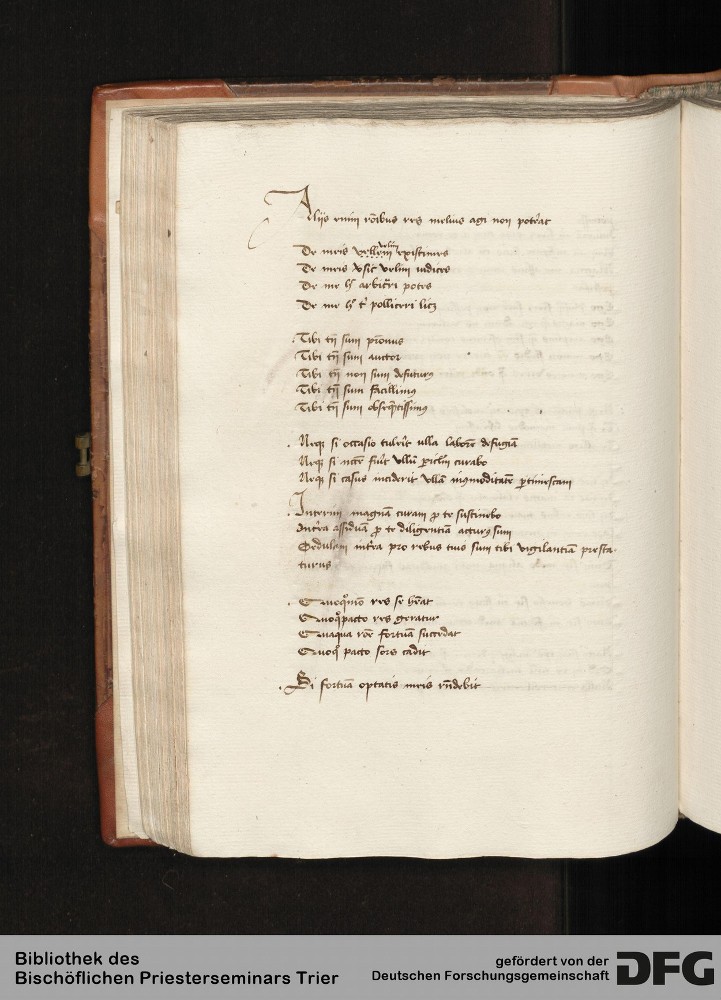 Aliis enim rōibus res melius agi non poterat
De meis vellem velim existimes
De meis sic velim iudices
De me hoc arbitrari potes
De me hoc tibi polliceri licet
Tibi tn̄ sum pronus
Tibi tn̄ sum auctor
Tibi tn̄ non sum defuturus
Tibi tn̄ sum facillimus
Tibi tn̄ sum obsequentissimus
Neque si occasio tulerit ulla laborē defugiā
Neque si fuerit ullū periclm̄ curabo
Neque si casus inciderit ullā incōmoditatē pertimescam
Interim magnā curam pro te sustinebo
Interea assiduā pro te diligentiā acturus sum
Sedulam interea pro rebus tuis sum tibi vigilantiā presta-
turus
Quoquomodo res se habeat
Quoquopacto res geratur
Quaqua rōe fortuna succedat
Quoquo pacto sors cadit
Si fortuna optatis meis rn̄debit
Bibliothek des
Bischöflichen Priesterseminars Trier
gefördert von der
Deutschen Forschungsgemeinschaft
DFG